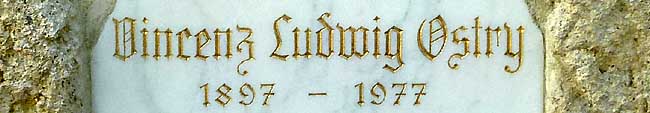 Vincenz Ludwig Ostry
1897 – 1977